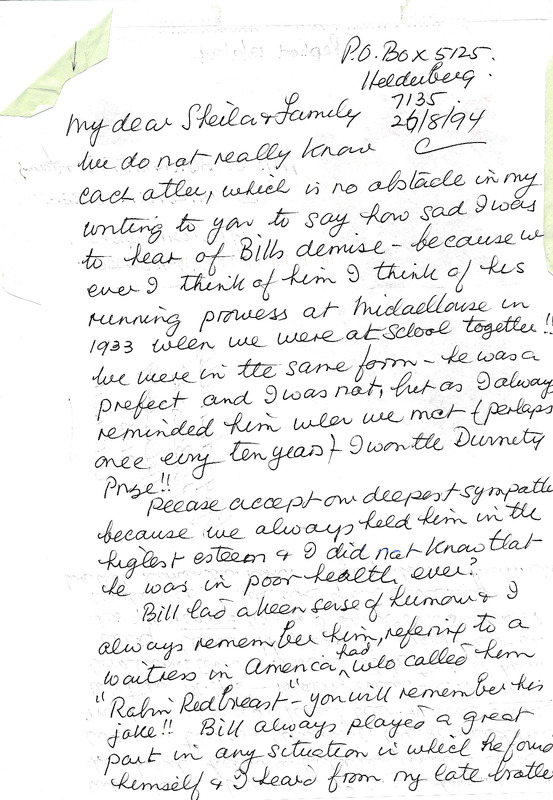 P.O. Box 5125.
Helderberg.
7135.
26/8/94
My dear Sheila & Family
We do not really know
each other, which is no obstacle in my
writing to you to say how sad I was
to hear of Bills demise – because w
ever I think of him I think of his
running prowess at Michaelhouse in
1933 when we were at School together!!
We were in the same form – he was a
prefect and I was not, but as I always
reminded him when we met (perhaps
once every ten years) I won the
Prize!!
Please accept our deepest sympath
because we always held him in the
highest esteem & I did not know that
he was in poor health, ever?
Bill had a keen sense of humour & I
always remember him, referring to a
waitress in America, who had called him
"Robin Redbreast" – you will remember his
joke!! Bill always played a great
part in any situation in which he found
himself & I heard from my late brother